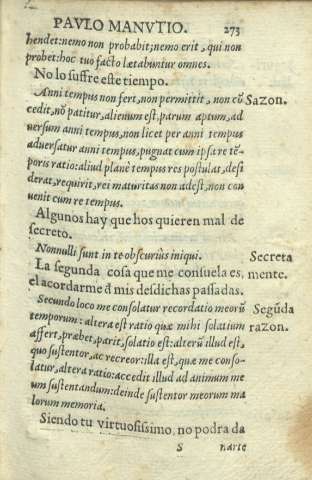 PAVLO MANVTIO. 273
hendet: nemo non probabit; nemo erit, qui non
probet: hoc tuo facto lætabuntur omnes.
No lo suffre este tiempo.
Anni tempus non fert, non permittit, non cõ Sazon.
cedit, nõ patitur, alienum est, parum aptum, ad
uersum anni tempus, non licet per anni tempus
aduersatur anni tempus, pugnat cum ipsa re tẽ-
poris ratio: aliud planè tempus res postulat, desi
derat, requirit, rei maturitas non adest, non con
uenit cum re tempus.
Algunos hay que hos quieren mal de
secreto.
Nonnulli sunt in te obscuriùs iniqui. Secreta
La segunda cosa que me consuela es, mente.
el acordarme d mis desdichas passadas.
Secundo loco me consolatur recordatio meorũ Segũda
temporum: altera est ratio quæ mihi solatium razon.
affert, præbet, parit, solatio est: alterũ illud est,
quo sustentor, ac recreor: illa est, quæ me conso-
latur, altera ratio: accedit illud ad animum me
um sustentandum: deinde sustentor meorum ma
lorum memoria.
Siendo tu virtuosissimo, no podra da
S parte